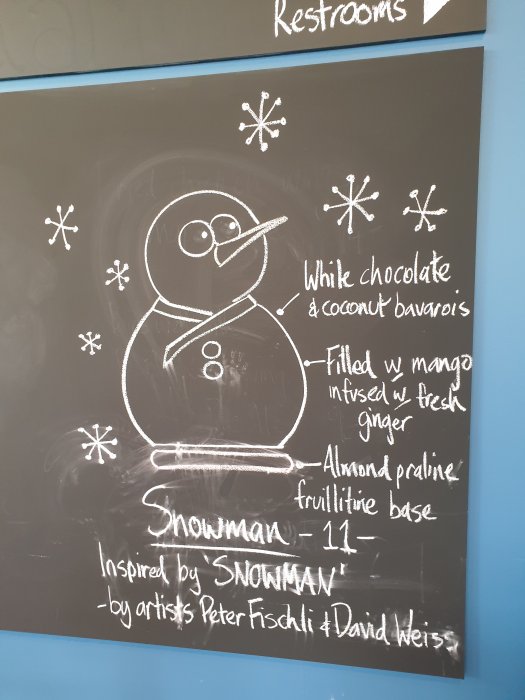 RESTROOMS
White chocolate
& coconut bavarois
Filled w mango
infused w fresh
ginger
Almond praline
fruillitine base
Snowman - 11 -
Inspired by 'SNOWMAN'
- by artists Peter Fischli & David Weiss